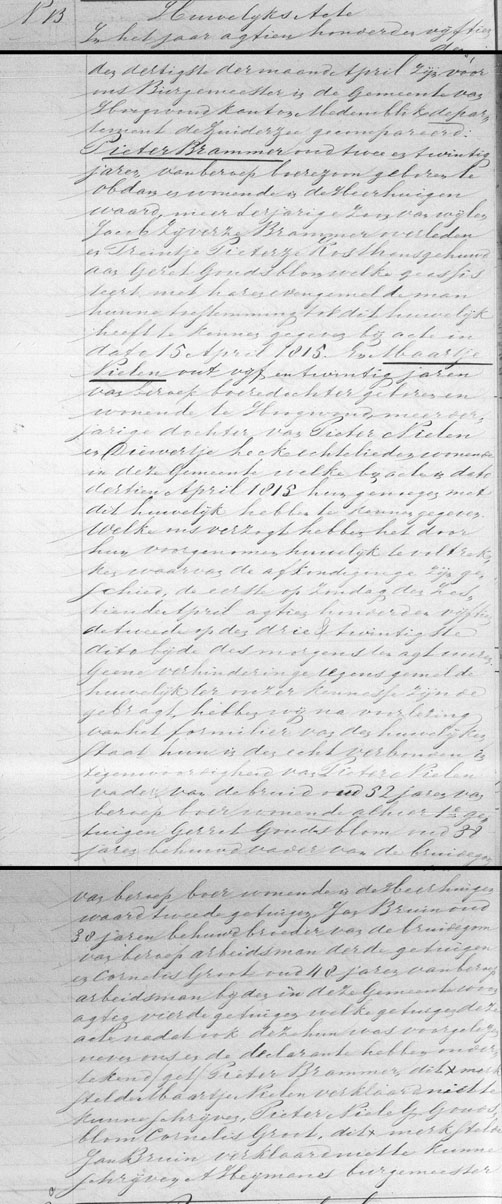 N 13
Huwelyks Acte
In het jaar agtien honderden vyftien
den
den dertigste der maand April zyn voor
ons Burgemeester in de Gemeente van
Hoogwoud kanton Medemblik depar
tement de Zuiderzee gecompareerd:
Pieter Brammer oud twee en twintig
jaren, van beroep boerezoon geboren te
Obdam en wonende in de Heerhuigen
waard, meerderjarige zoon van wylen
Jacob Brammer overleden
en Trientje Pieterze gehuwd
aan Gerret Goudsblom welke
met haren vermelde man
hunne toestemming tot dit huwelyk
heeft te kennen gegeven by acte in
dato 15 April 1815. En Maartje
Nielen out vyf en twintig jaren
van beroep boeredochter geboren en
wonende te Hoogwoud meerder
jarige dochter van Pieter Nielen
en Diewertje echtelieden wonende
in deze Gemeente welke by acte in dato
dertien April 1815 hun genoegen met
dit huwelyk hebben te kennen gegeven.
Welke ons verzogt hebben het door
hun voorgenomen huwelyk te voltrek
ken waarvan de afkondiginge zyn ge
schied, de eerste op Zondag den zes
tiende April agtien honderden vyftien
de tweede op den drie & twintigste
dito byde des morgens ten agt uuren
Geene verhinderinge tegens gemelde
huwelyk ter onzer kennesse zynde
gebragt, hebben wy na voorlezing
van het formulier van den huwelyken
staat hun in den echt verbonden in
tegenwoordigheid van Pieter Nielen
vader van de bruid oud 52 jaren van
beroep boer wonende alhier 1ste ge
tuigen Gerret Goudsblom oud 38
jaren behuwd vader van de bruidegom
van beroep boer wonende in de Heerhuigen
waard tweede getuigen Jan Bruin oud
38 jaren behuwd broeder van de bruidegom
van beroep arbeidsman derde getuigen
en Cornelis Groot oud 48 jaren van beroep
arbeidsman byden in deze Gemeente woon
agtig vierde getuigen welke getuigen deze
acte nadat ook deze hun was voorgelezen
nevens ons en de declarante hebben onder
tekend get/ Pieter Brammer, dit x merk
stelde Maartje Nielen verklaard niet te
kunnen schryven, Pieter Niele G Gouds
blom Cornelis Groot, dit x merk stelde
Jan Bruin verklaard niet te kunnen
schryven A Heymans burgemeester